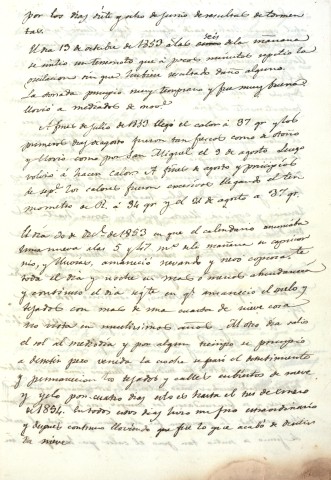 por los dias siete y ocho de junio de resultas de tormen
tas.
El dia 13 de octubre de 1853 á las seis de la mañana
se sintio un terremoto que á pocos minutos repitio la
oscilacion sin que hubiese resultado daño alguno.
La otoñada principio muy temprano y fue muy buena
llovió a mediados de novre.
A fines de julio de 1853 llegó el calor á 37 gr. y los
primeros dias de agosto fueron tan frescos como de otoño
y llovio como por San Miguel el 3 de agosto. Luego
volvio á hacer calor. A fines de agosto y principios
de sepe. los calores fueron excesivos llegando el ter
mometro de R. á 34 gr. y el 31 de agosto a 37 gr.
El dia 30 de Dice. de 1853 en que el calendario anunciaba
luna nueva a las 5 y 47 ms. de la mañana en capricor
nio, y lluvias, amaneció nevando y nevo copiosa te
todo el dia y noche en mas o menos abundancia
y continuo el dia sigte. en qe. amaneció el suelo y
tejados con mas de una cuarta de nieve cosa
no vista en muchisimos años. Al otro dia salio
el sol al mediodia y por algun tiempo se principio
a derretir pero venida la noche se paró el derretimiento
y permanecieron los tejados y calles cubiertos de nieve
y yelo por cuatro dias esto es hasta el tres de enero
de 1854. En todos estos dias hizo un frio extraordinario
y despues continuo lloviendo que fue lo que acabó de deshacer
la nieve